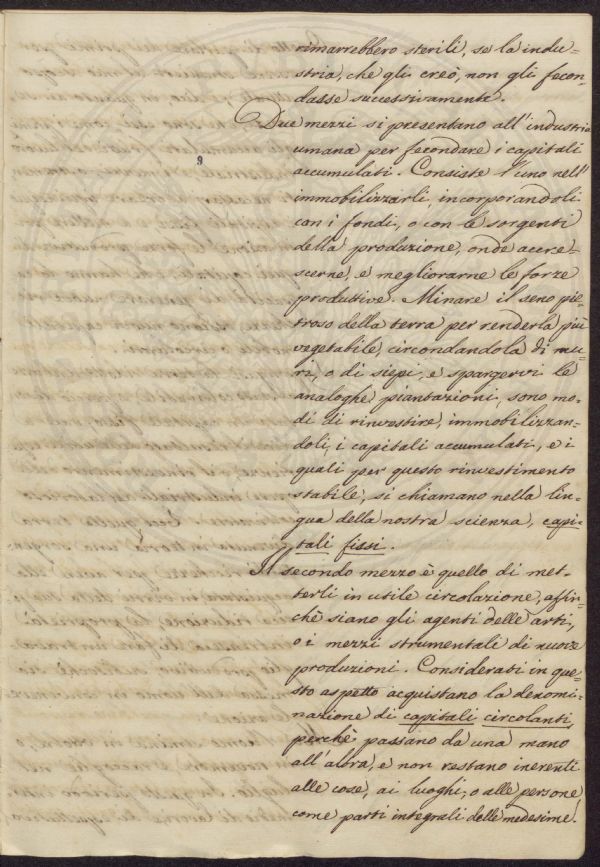 rimarrebbero sterili, se la indu=
stria, che gli creò, non gli fecon=
dasse successivamente.
Due mezzi si presentano all'industria
umana per fecondare i capitali
accumulati. Consiste l'uno nell'
immobilizzarli, incorporandoli
con i fondi, o con le sorgenti
della produzione, onde accre=
scerne, e megliorarne le forze
produttive. Minare il seno pie=
troso della terra per renderla più
vegetabile, circondandola di mu=
ri, o di siepi, e spargervi le
analoghe piantazioni, sono mo=
di di rinvestire, immobilizzan=
doli, i capitali accumulati, e i
quali per questo rinvestimento
stabile, si chiamano nella lin=
gua della nostra scienza, capi=
tali fissi.
Il secondo mezzo è quello di met=
terli in utile circolazione, affin=
chè siano gli agenti delle arti,
o i mezzi strumentali di nuove
produzioni. Considerati in que=
sto aspetto acquistano la denomi=
nazione di capitali circolanti,
perchè passano da una mano
all'altra, e non restano inerenti
alle cose, ai luoghi, o alle persone
come parti integrali delle medesime.